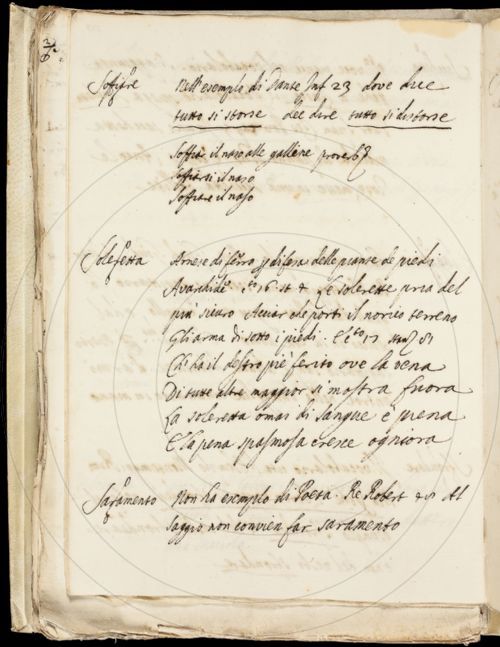 Soffiare Nell'esempio di Dante Inf 23 dove dice
tutto si storse dee dire tutto si distorse
Soffiar il naso alle galline proverb
Soffiarsi il naso
Soffiare il naso
Soleretta Arnese di ferro p difesa delle piante de piedi
Avarchide 16 st 7 Le solerette una del
piu sicuro Acciar che porti il norico terreno
Gli arma di sotto i piedi 17 81
Ch'ha il destro piè ferito ove la vena
Di tutte altre maggior si mostra fuora
La soleretta omai di sangue è piena
E la pena spasmosa cresce ogniora
Saramento Non ha esempio di Poeta. Re Robert Al
saggio non convien far saramento